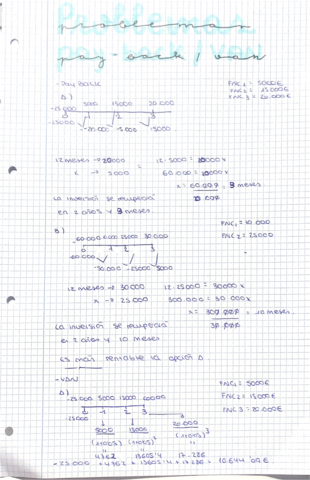 problemas
pay-back / van
- Pay back
FNC1 = 5000€
FNC2 = 15000€
FNC3 = 20.000€
A)
-25.000 5000 15000 20.000
0 1 2 3
-25000
-20.000 -5000 15000
12 meses → 20000 12·5000 = 20000x
x → 5000 60.000 = 20000x
x = 60.000, 3 meses
20.000
La inversión se recuperará
en 2 años y 3 meses
B)
FNC1 = 10.000
FNC2 = 25000
-60.000 10.000 25000 30.000
0 1 2 3
-60.000
-50.000 -25000 5000
12 meses → 30000 12·25000 = 30000x
x → 25000 300.000 = 30 000x
x = 300.000, 10 meses
30.000
La inversión se recuperará
en 2 años y 10 meses
Es más rentable la opción A
- VAN
A)
FNC1 = 5000€
FNC2 = 15000€
FNC3 = 20.000€
-25.000 5000 15000 20.000
0 1 2 3
-25000
5000 15000 20.000
4762 13605'4 17.286
-25.000 + 4762 + 13605'4 + 17.286 = 10.644